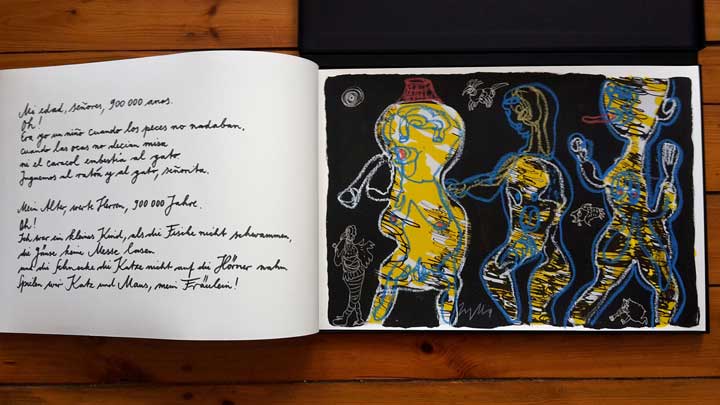 Mi edad, señores, 900 000 anos.
Oh!
Era yo un niño cuando los peces no nadaban,
cuando las ocas no decían misa
ni el caracol embestía al gato.
Juguemos al ratón y al gato, señorita.
Mein Alter, werte Herren, 900 000 Jahre.
Oh!
Ich war ein kleines Kind, als die Fische nicht schwammen,
die Gänse keine Messe lasen
und die Schnecke die Katze nicht auf die Hörner nahm
Spielen wir Katz und Maus, mein Fräulein!